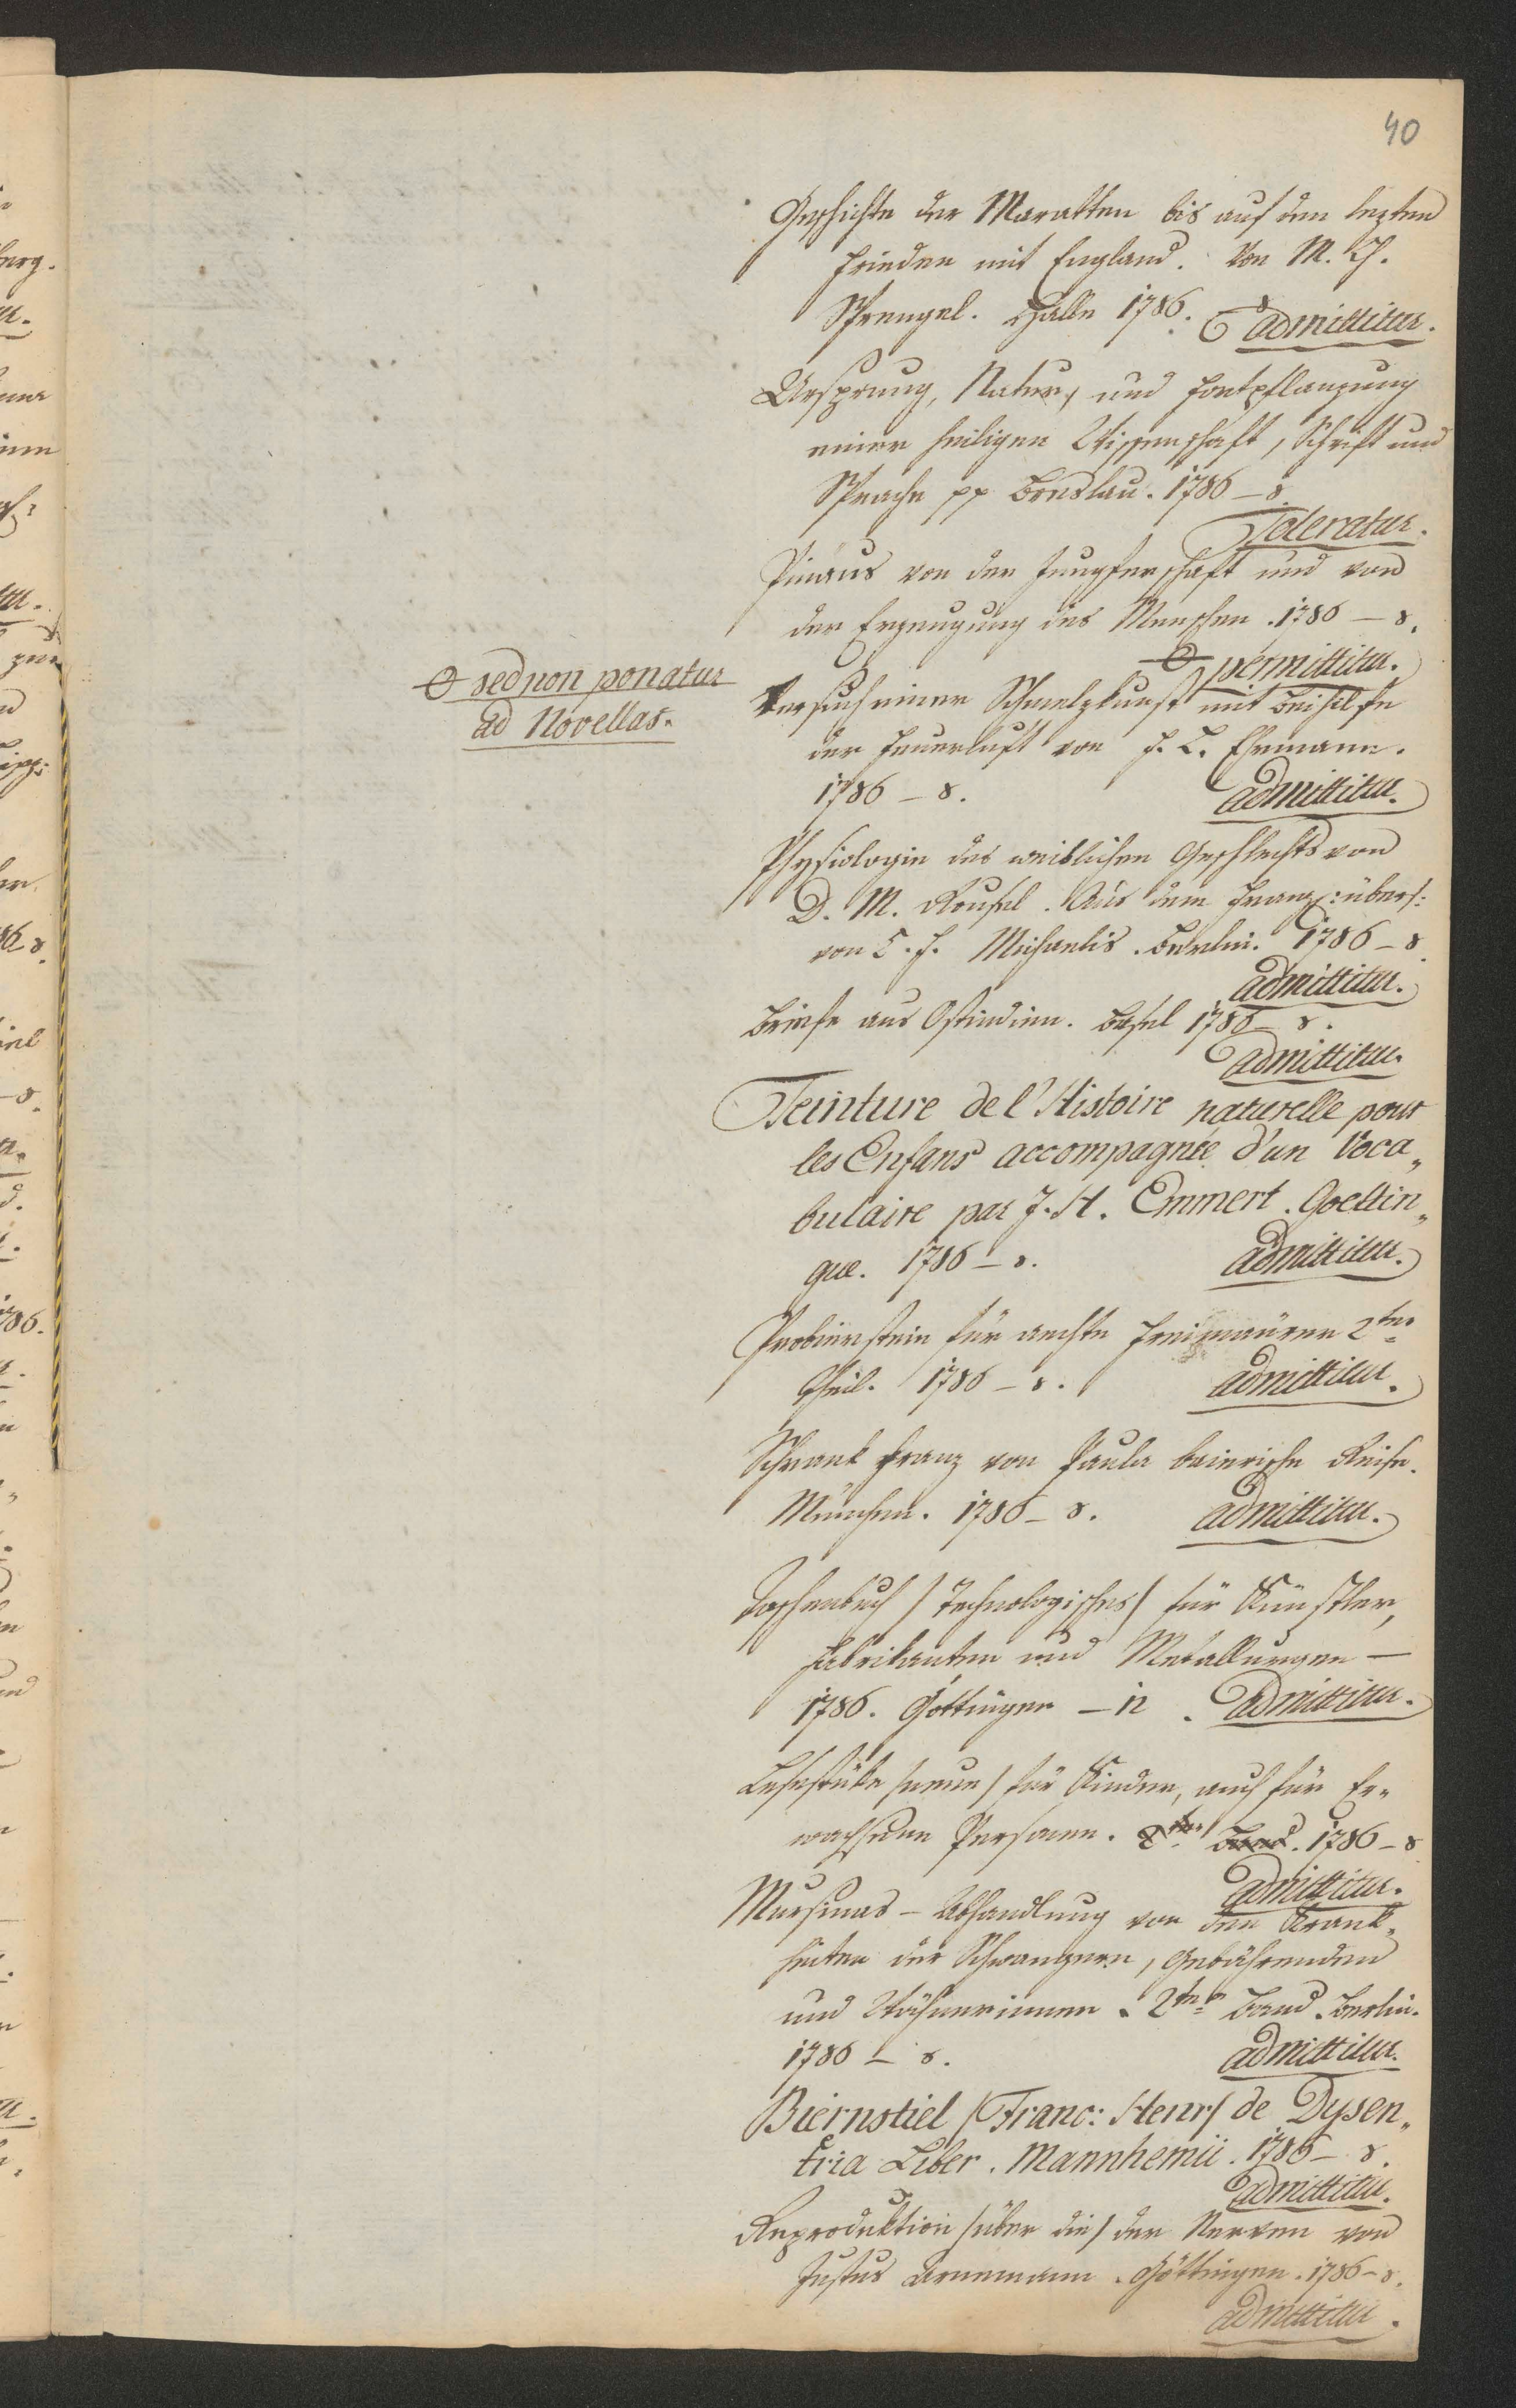 40
Geschichte der Maratten bis auf den lezten
Frieden mit England. Von M. C.
Sprengel. Halle 1786. 8 admittitur.
Ursprung, Natur, und Fortpflanzung
einer heiligen Wissenschaft, Schrift und
Sprache pp Breslau. 1786 – 8
Toleratur.
Pinäus von der Jungferschaft und von
der Erzeugung des Menschen. 1786 – 8.
permittitur.
sed non ponatur
ad Novellas.
Versuch einer Schmelzkunst mit Beihilfe
der Feuerluft von F. L. Ehrmann.
1786 – 8. admittitur.
Physiologie des weiblichen Geschlechts von
D. M. Roussel. Aus dem Franz: übers:
von C. F. Michaelis. Berlin. 1786 – 8.
admittitur.
Briefe aus Ostindien. Basel 1786 – 8.
admittitur.
Teinture de l'Histoire naturelle pour
les Enfans accompagnée d'un Voca„
bulaire par J. H. Emmert. Goettin„
gue. 1786 – 8. admittitur.
Probierstein für aechte Freimaürer 2ter
Theil. 1786 – 8. admittitur.
Schrank Franz von Paula baierische Reise.
München. 1786 – 8. admittitur.
Taschenbuch /Technologisches/ für Künstler,
Fabrikanten und Metallurgen –
1786. Göttingen – 12. admittitur.
Lesestüke /neue/ für Kinder, auch für Er„
wachsene Personen. 2ter Band. 1786 – 8
admittitur.
Mursinas – Abhandlung von den Krank„
heiten der Schwangern, Gebährenden
und Wöchnerinnen. 2ter Band. Berlin.
1786 – 8. admittitur.
Biernstiel /Franc: Henr/ de Dysen„
tria Liber. Mannhemii. 1786 – 8.
admittitur.
Reproduktion /über die/ der Nerven von
Justus Arnemann. Göttingen. 1786 – 8.
admittitur.